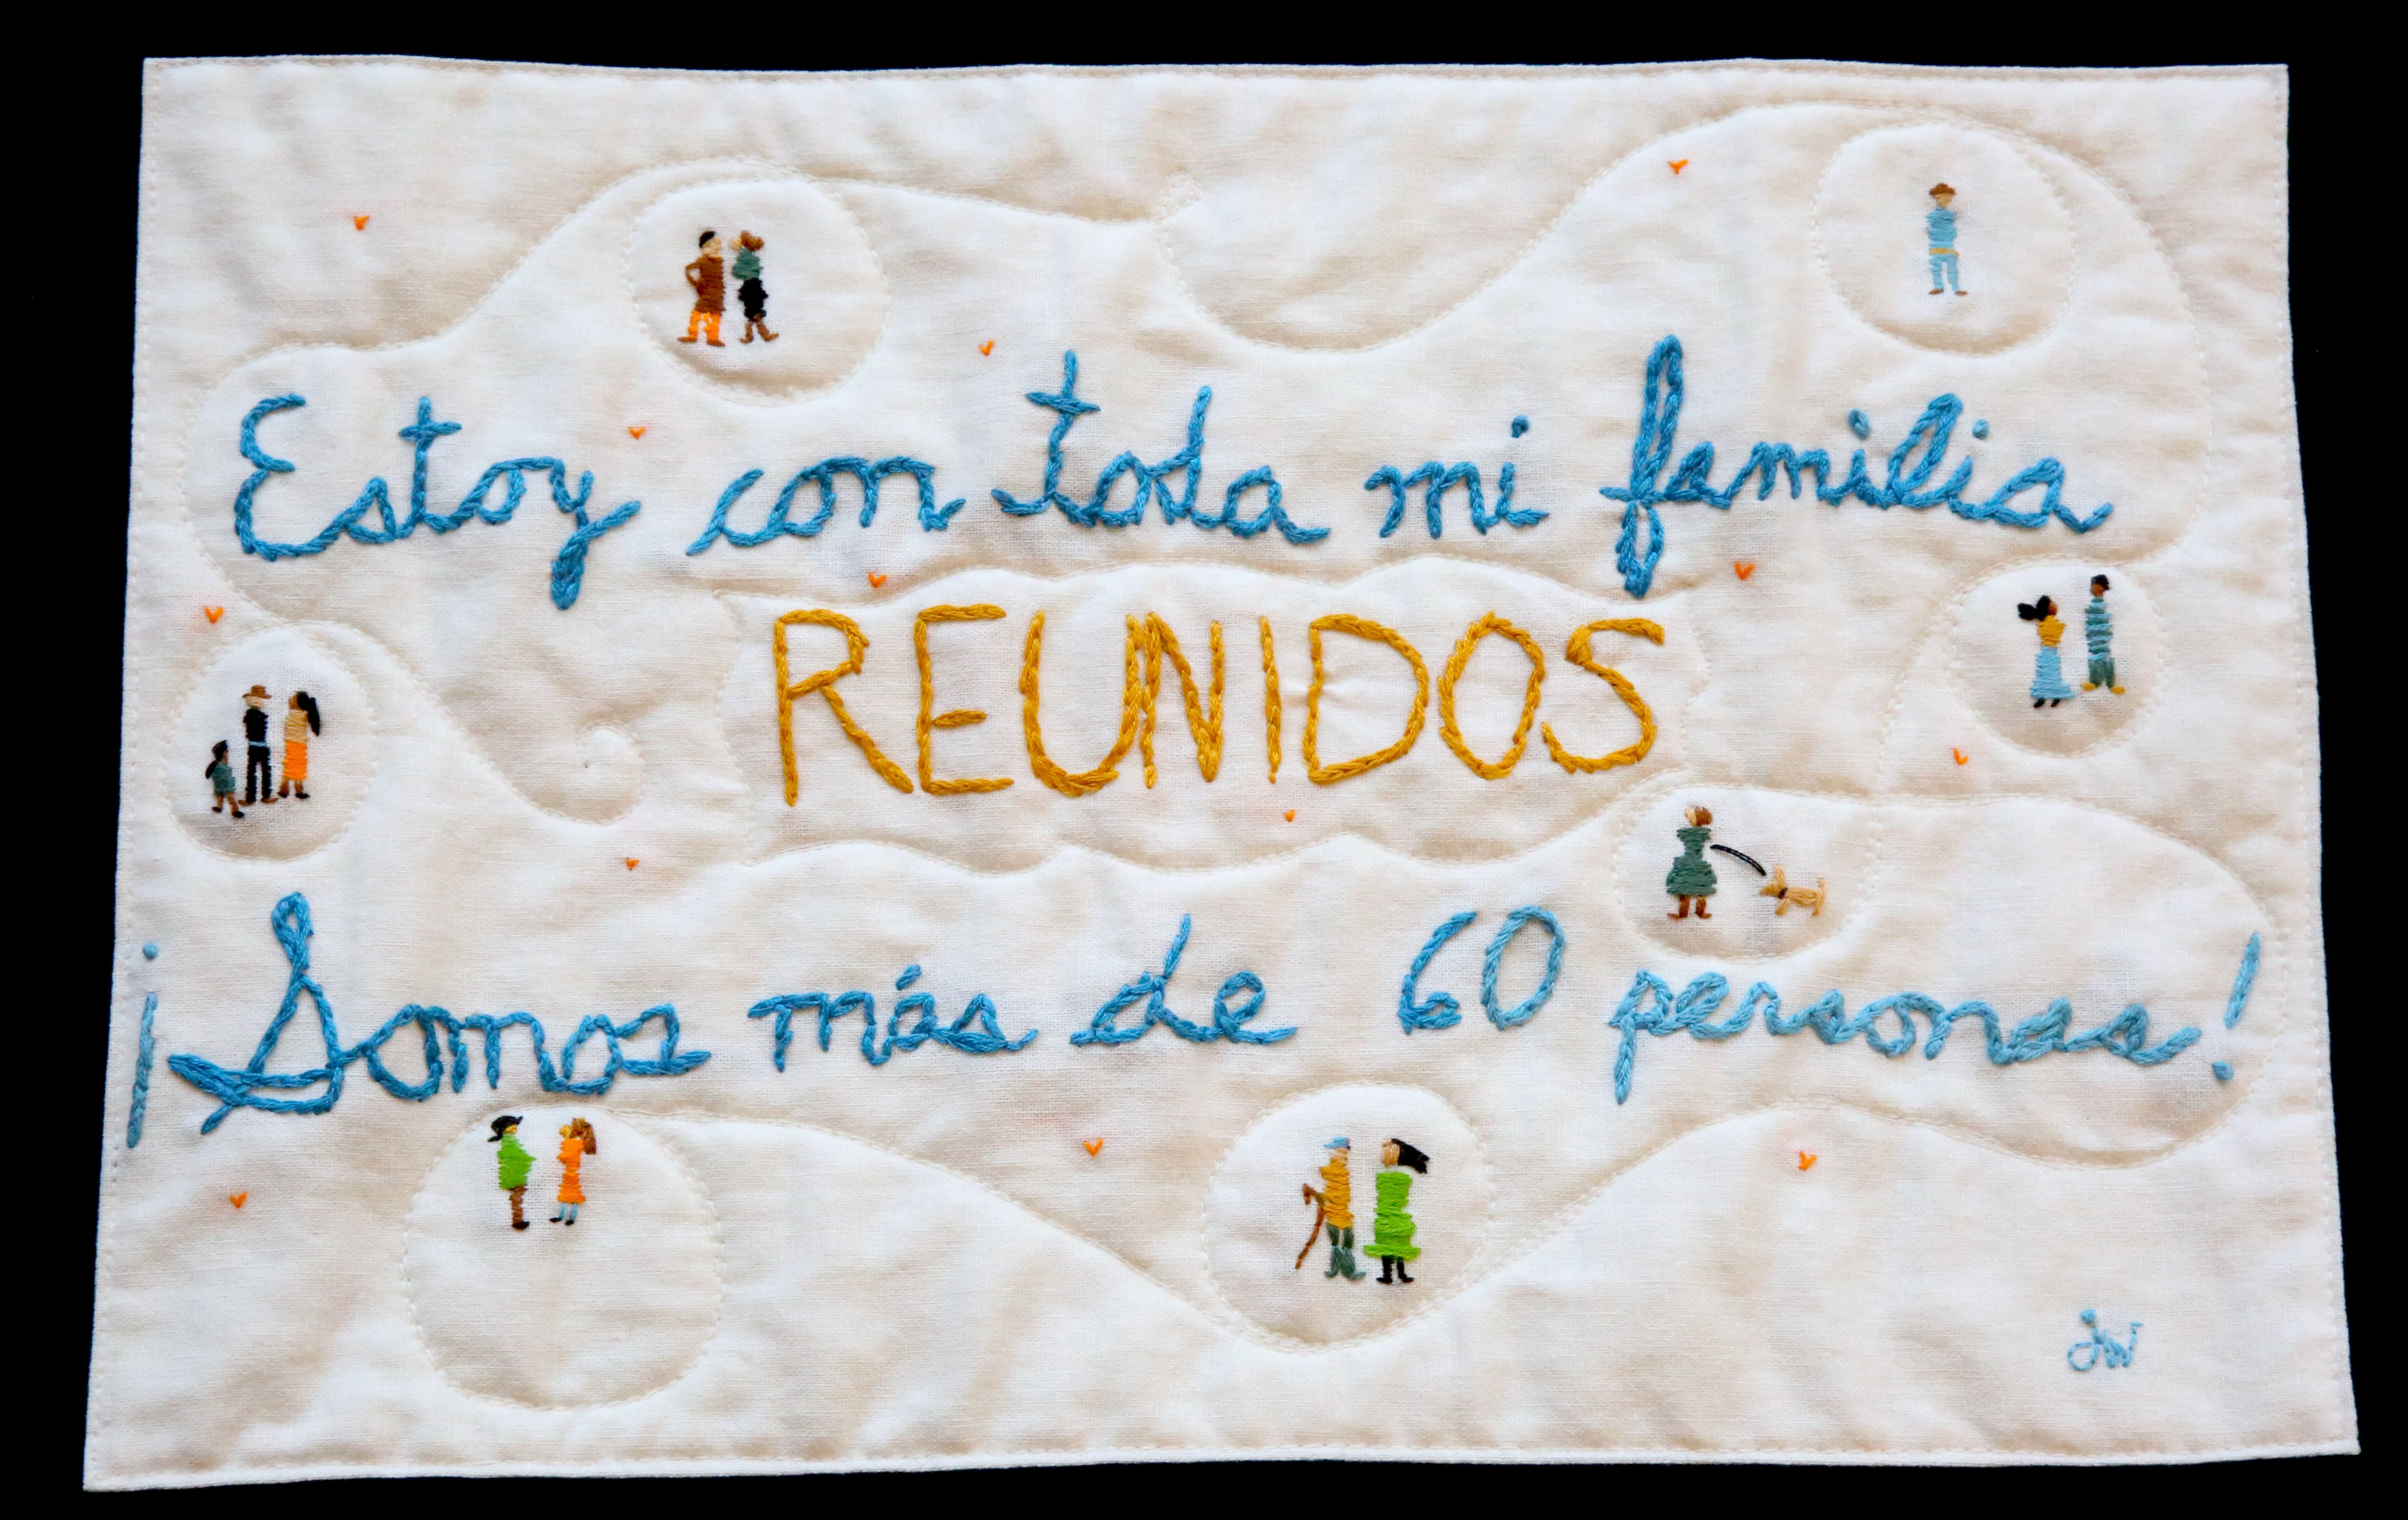 Estoy con toda mi familia
REUNIDOS
¡Somos más de 60 personas!
jw